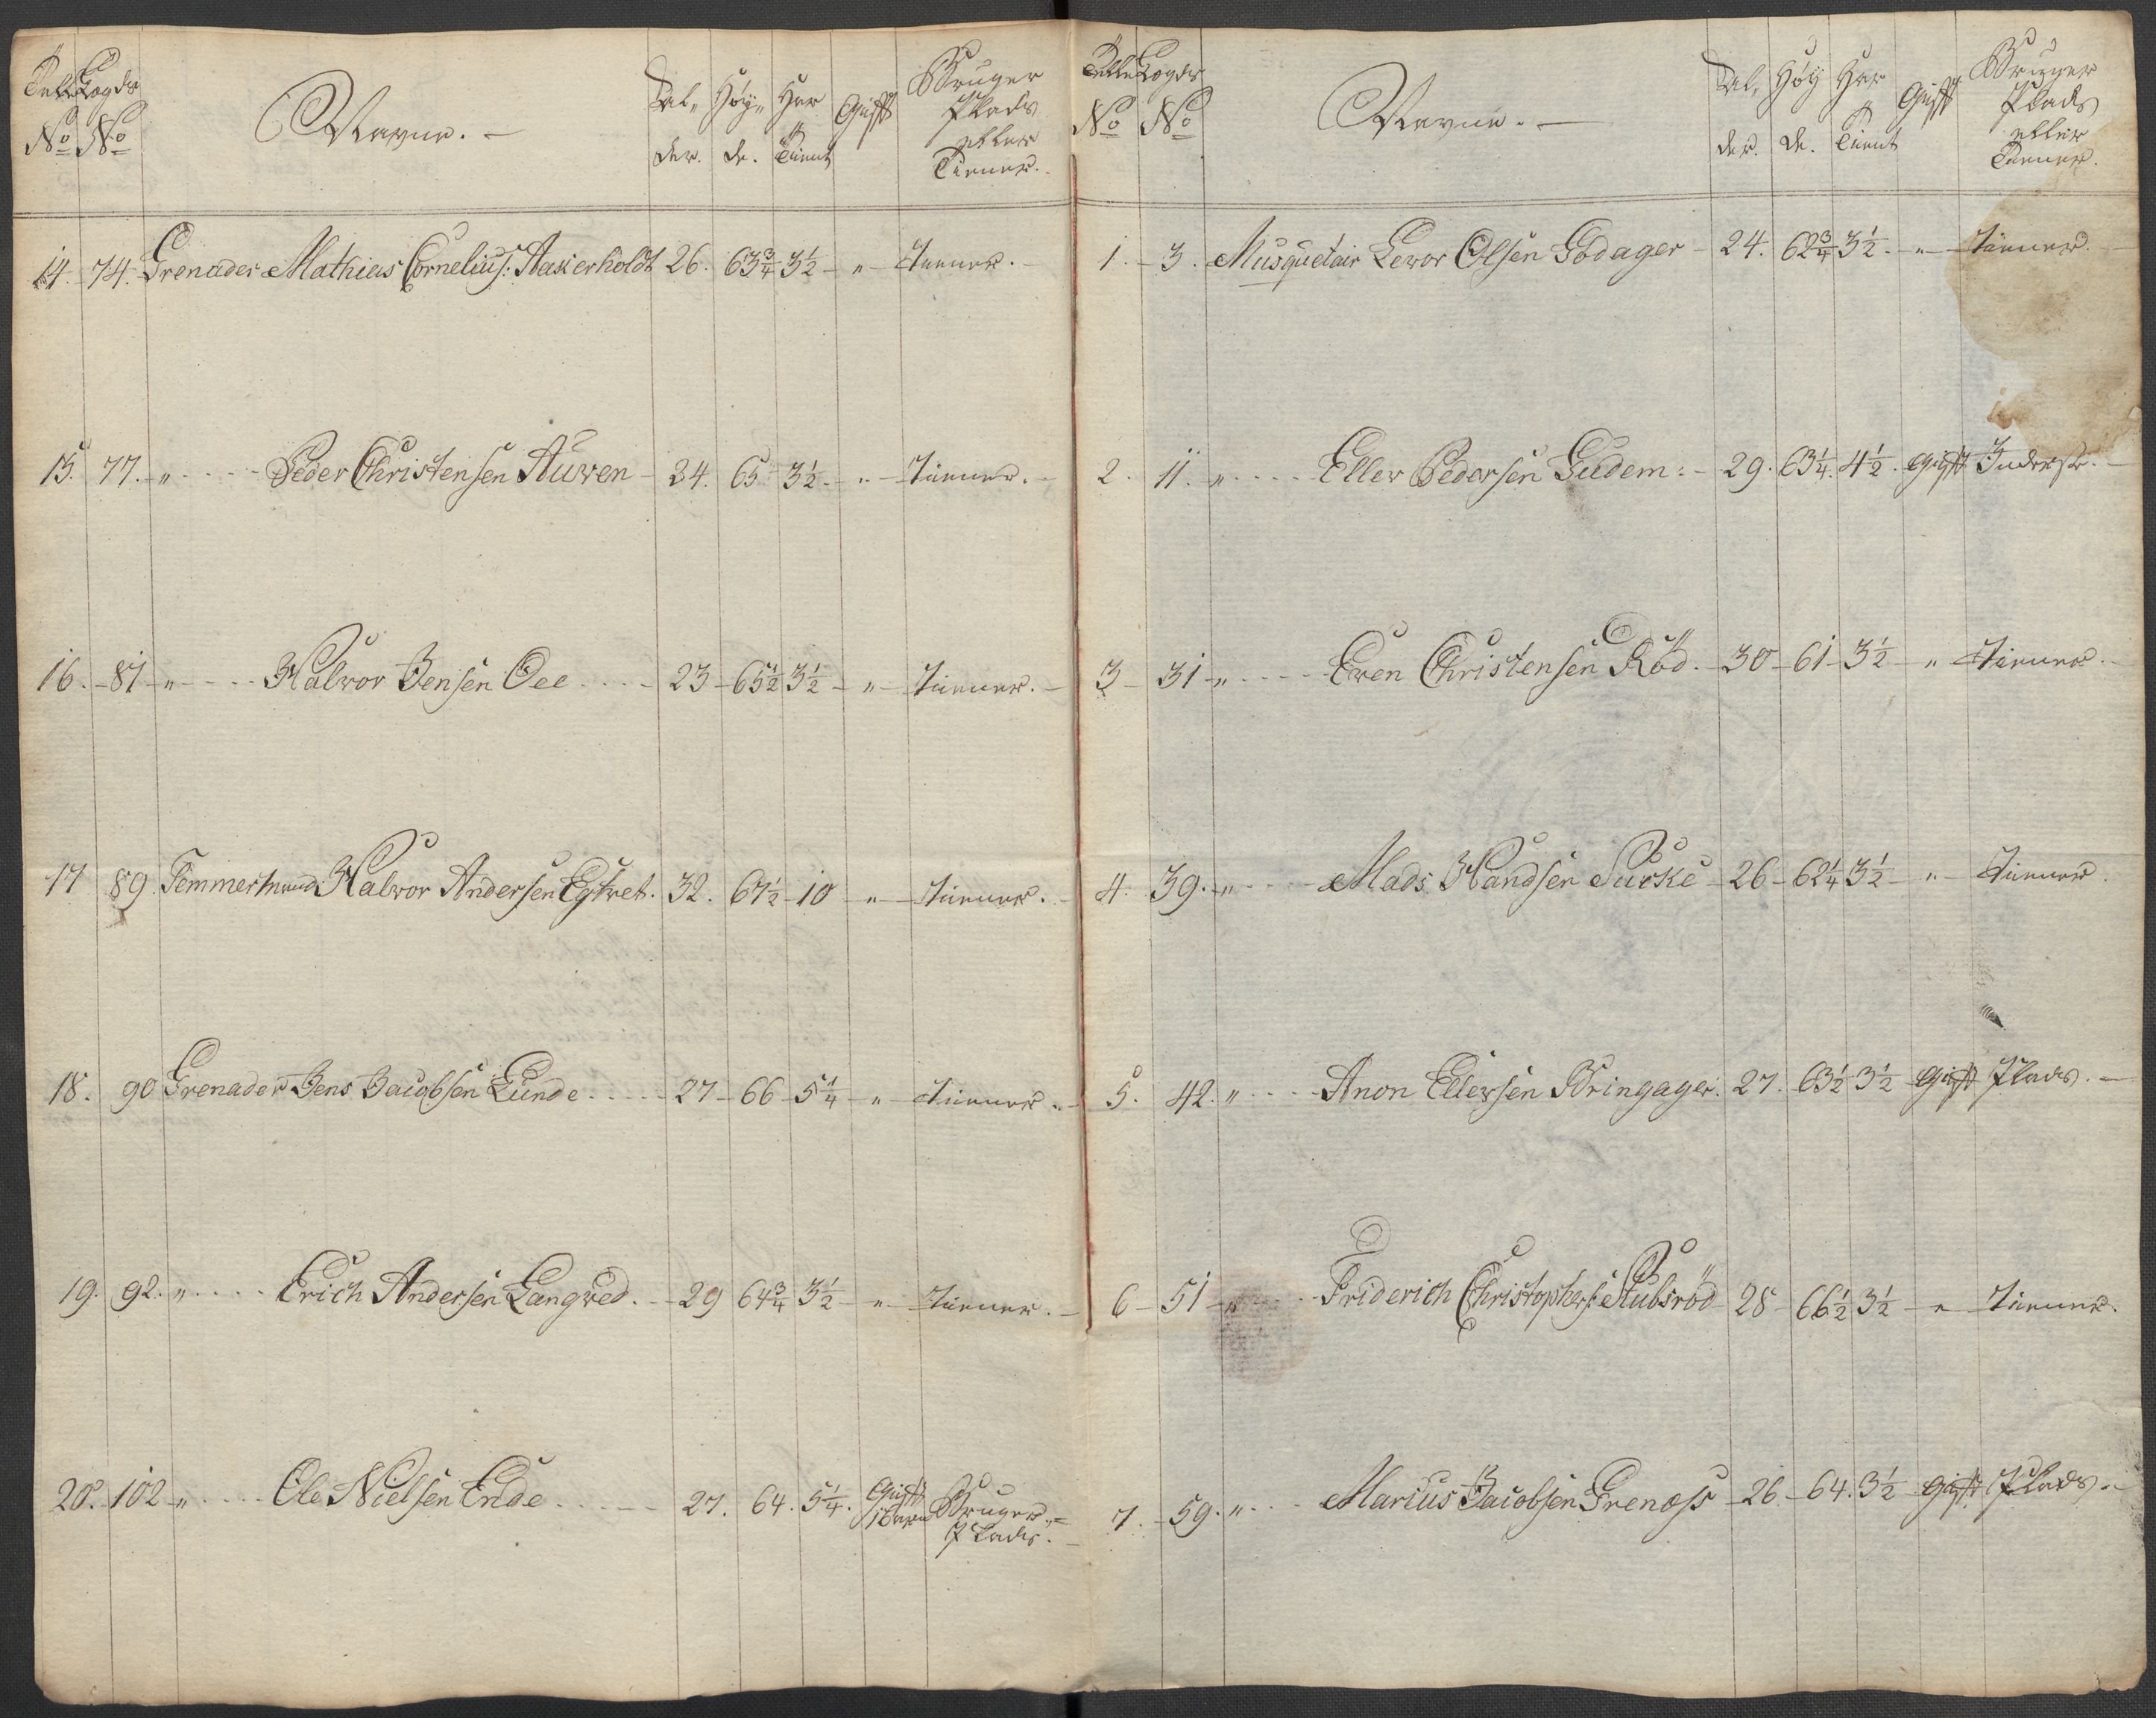 Telle Lægds Navne. — Al- Höy- Har Gift Bruger
No No der. de. tient Plads
eller
Tiener.
14. 74. Grenader Mathias Corneliuss: Aaserholdt 26. 63 3/4 3 1/2 - " - tiener. -
15. 77. " Peder Christensen Auwen - 24. 65 3 1/2 - " - tiener. -
16. - 81 - " Halvor Jensen Oee 23 - 65 1/2 3 1/2 - " - tiener. -
17 89. Temmermand Halvor Andersen Egtvet. 32. 67 1/2 - 10 - " - tiener. -
18. 90 Grenader Jens Jacobsen Lunde 27 - 66 - 5 1/4 - " - tiener. -
19. 92. " Erich Andersen Langved. - 29 64 3/4 3 1/2 - " - tiener. -
20. 102 - " Ole Nielsen Ende 27. 64. 5 1/4. Gift Bruger
1 Barn Plads. -
Telle Lægds Navne. — Al- Höy Har Gift Bruger
No No der. de. tient Plads
eller
Tiener.
1. - 3. Musquetair Lewor Olsen Godager - 24. 62 3/4 3 1/2. - " - tiener. -
2. 11. " Eller Pedersen Gudem: - 29. 63 1/4. 4 1/2. Gift Inderst. -
3 - 31 - " Even Christensen Röd. - 30 - 61 - 3 1/2 - " tiener. -
4. 39. - " Mads Handsen Purke - 26 - 62 1/4 3 1/2 - " - tiener.
5. 42. " Anon Ellersen Bringager. 27. 63 1/2 3 1/2 Gift Plads. -
6 - 51 - " Friderich Christophers: Stubsröd 28 - 66 1/2 3 1/2 - " - tiener.
7. - 59. " Marius Jacobsen Grenæss - 26 - 64. 3 1/2 - Gift Plads. -